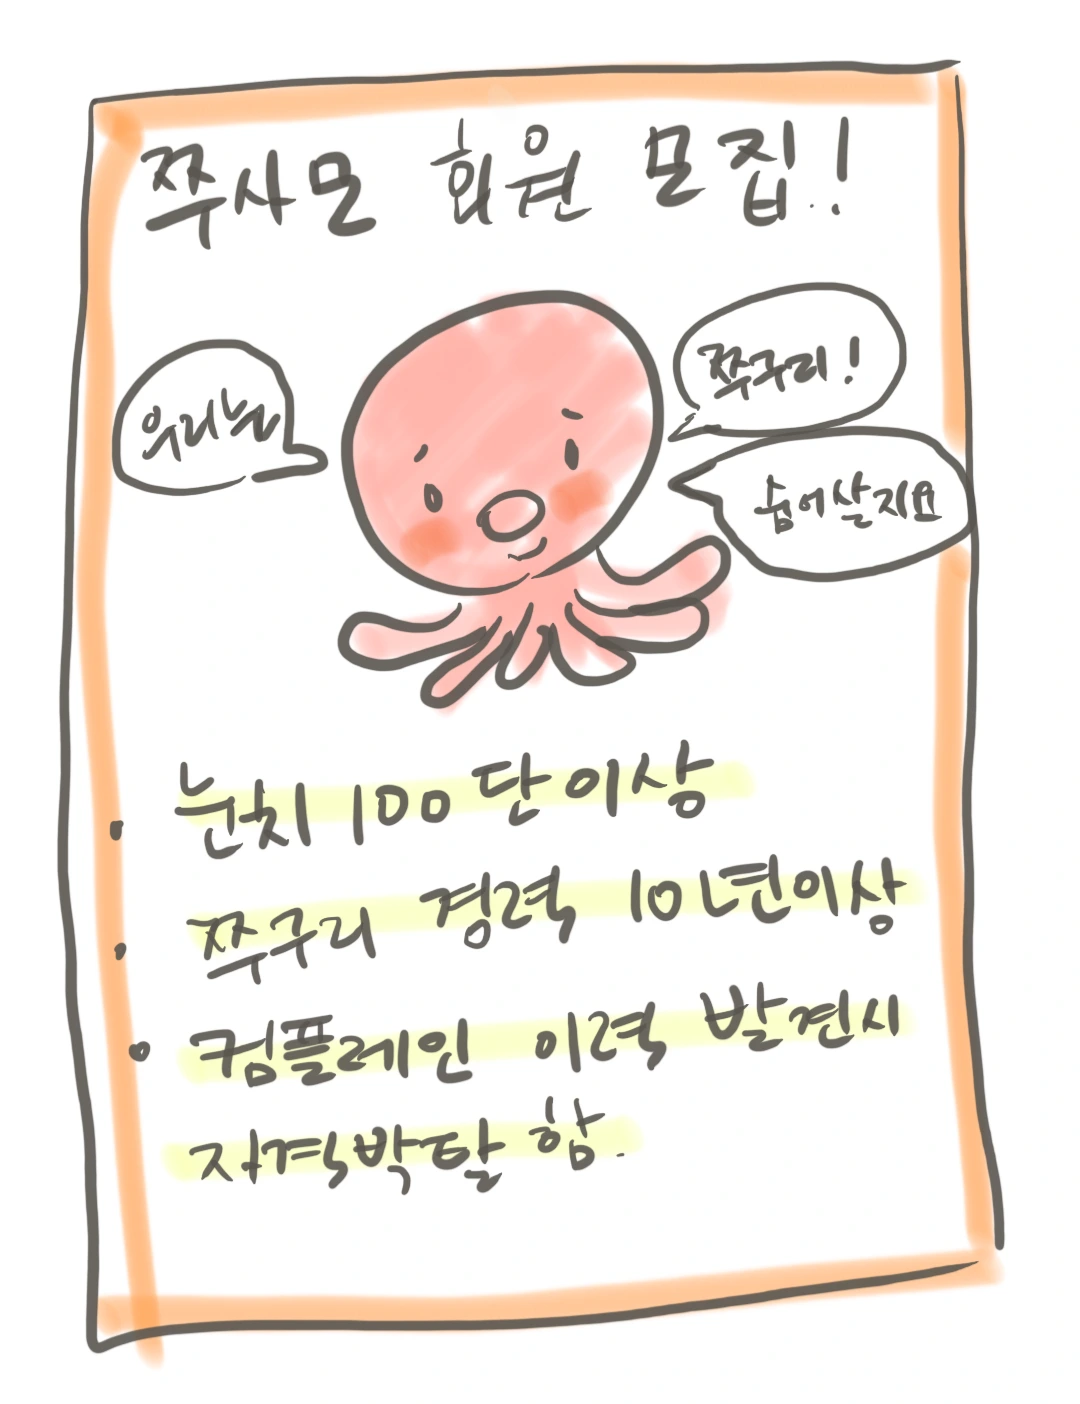 쭈사모 회원 모집!
우리는
쭈구리!
숨어살지요
• 눈치 100단이상
• 쭈구리 경력 10년이상
• 컴플레인 이력 발견시
자격박탈함.